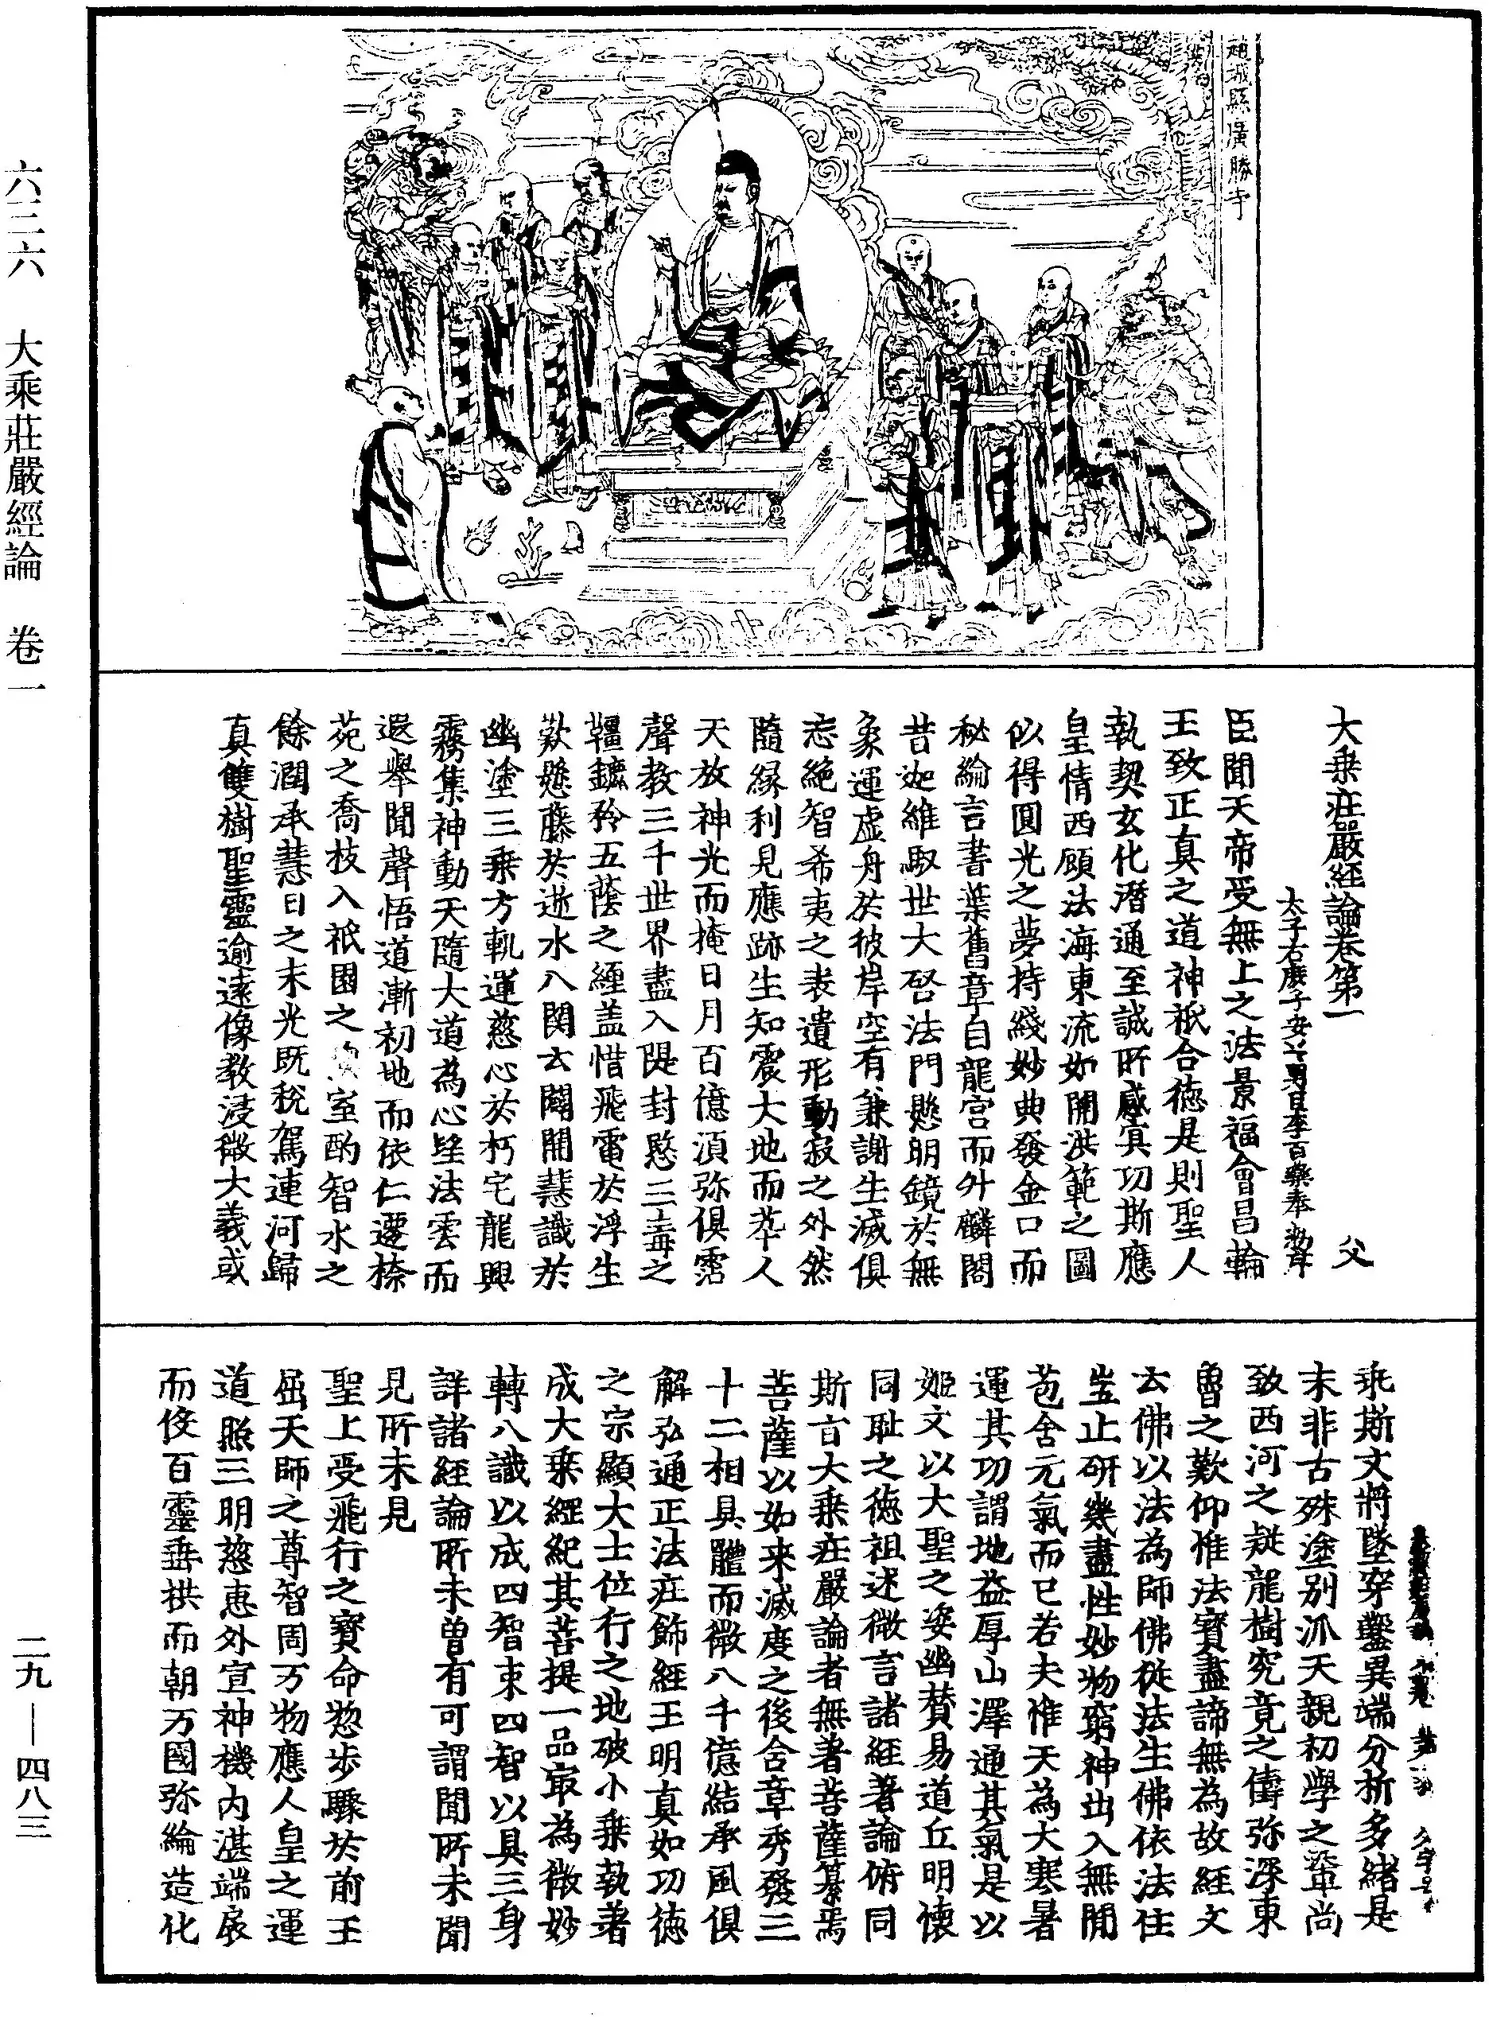 趙城縣廣勝寺
大乘莊嚴經論卷第一 父
太子右庶子安平男臣李百藥奉勑序
臣聞天帝受無上之法景福會昌輪
王致正真之道神祇合德是則聖人
執契玄化潛通至誠所感冥功斯應
皇情西顧法海東流如開洪範之圖
似得圓光之夢持綫妙典發金口而
秘綸言書葉舊章自龍宮而外麟閣
昔迦維馭世大啓法門懸明鏡於無
象運虛舟於彼岸空有兼謝生滅俱
忘絕智希夷之表遺形動寂之外然
隨緣利見應跡生知震大地而萃人
天放神光而掩日月百億須弥俱霑
聲教三千世界盡入隄封愍三毒之
韁鏕矜五蔭之纏盖惜飛電於浮生
歎懸藤於逝水八関云闢開慧識於
幽塗三乘方軌運慈心於朽宅龍興
霧集神動天隨大道為心垩法雲而
遐舉聞聲悟道漸初地而依仁遷㮈
苑之喬枝入祇園之室酌智水之
餘潤承慧日之末光既稅駕連河歸
真雙樹聖靈逾遠像教浸微大義或
乘斯文將墜穿鑿異端分析多緒是
末非古殊塗別派天親初學之輩尚
致西河之疑龍樹究竟之儔弥深東
魯之歎仰惟法寶盡諦無為故經文
云佛以法為師佛從法生佛依法住
豈止研幾盡性妙物窮神出入無閒
苞含元氣而已若夫惟天為大寒暑
運其功謂地益厚山澤通其氣是以
姬文以大聖之姿幽贊易道丘明懷
同耻之德祖述微言諸經著論俯同
斯旨大乘莊嚴論者無著菩薩纂焉
菩薩以如来滅度之後含章秀發三
十二相具體而微八千億結承風俱
解弘通正法莊飾經王明真如功德
之宗顯大士位行之地破小乘執著
成大乘經紀其菩提一品最為微妙
轉八識以成四智束四智以具三身
詳諸經論所未曽有可謂聞所未聞
見所未見
聖上受飛行之寶命惣步驟於前王
屈天師之尊智周万物應人皇之運
道照三明慈惠外宣神機內湛端扆
而役百靈垂拱而朝万國弥綸造化
六三六 大乘莊嚴經論 卷一
二九—四八三